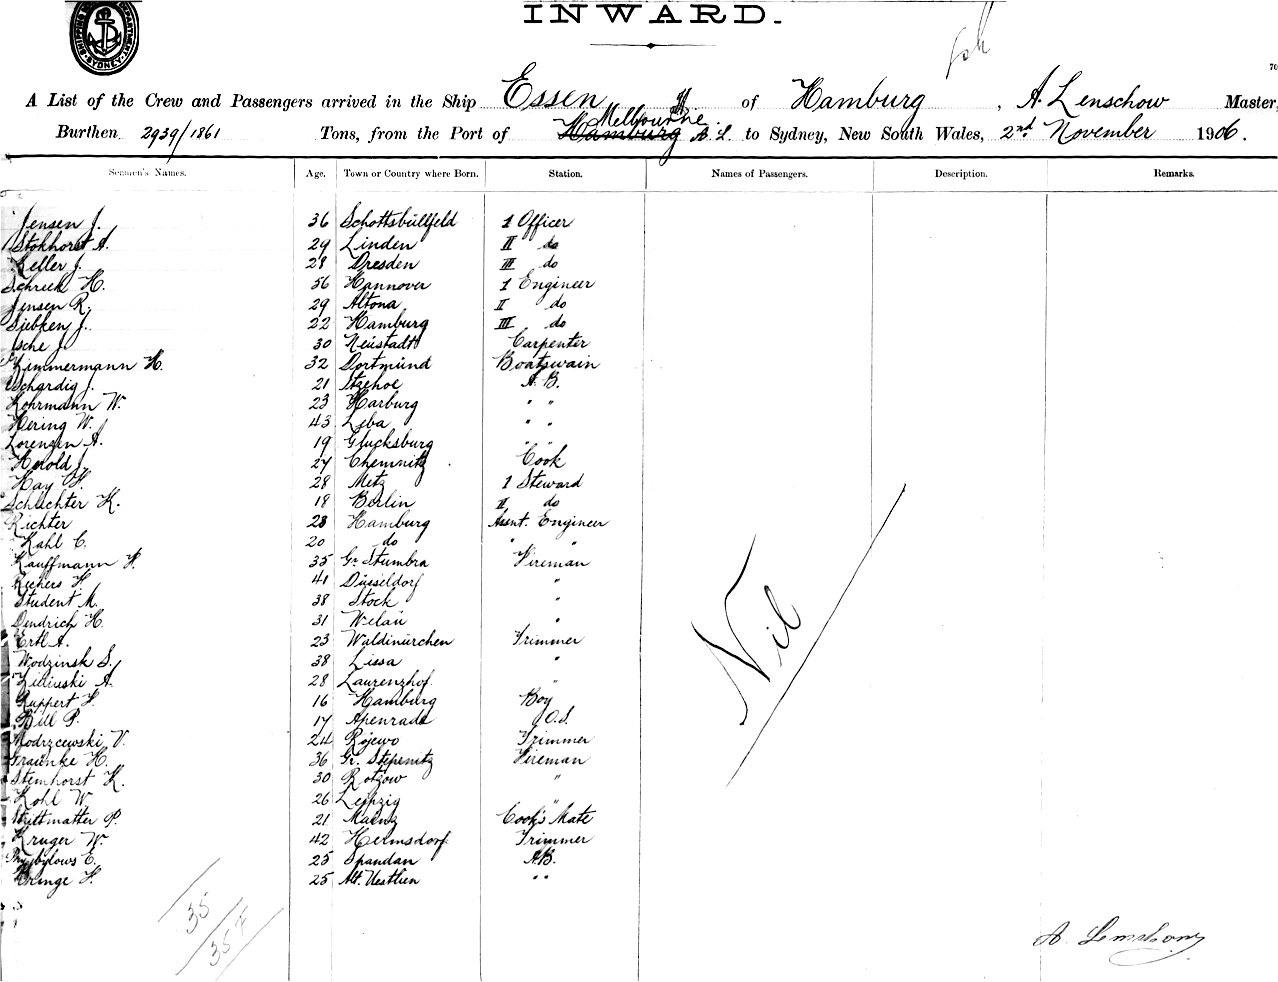 SHIPPING MASTER'S DEPARTMENT. SYDNEY.
INWARD.
70
A List of the Crew and Passengers arrived in the Ship Essen of Hamburg, A. Lenschow Master,
Burthen 2939/1861 Tons, from the Port of Hamburg Melbourne A. L. to Sydney, New South Wales, 2nd November 1906.
Seamen's Names. Age. Town or Country where Born. Station. Names of Passengers. Description. Remarks.
Jensen J. 36 Schottsbüllfeld 1 Officer
Stokhorst A. 29 Linden II do
Keller J. 28 Dresden III do
Schreck H. 56 Hannover 1 Engineer
Jensen R. 29 Altona II do
Siebken J. 22 Hamburg III do
Esche J. 30 Neustadt Carpenter
Zimmermann H. 32 Dortmünd Boatswain
Schardig J. 21 Itzehoe A. B.
Kohrmann W. 23 Harburg " "
Hering W. 43 Leba " "
Lorenzen A. 19 Glucksburg " "
Herold J. 27 Chemnitz Cook
Hay 28 Metz 1 Steward
Schlichter K. 18 Berlin II do
Richter 28 Hamburg Assnt. Engineer
Kahl C. 20 do " "
Kauffmann H. 35 Gr. Stumbra Fireman
41 Düsseldorf "
Student M. 38 Stock "
Dendrich H. 31 Welau "
Ertl A. 23 Waldmürchen Trimmer
Wodzinsk S. 38 Lissa "
Zielinski A. 28 Laurenzhof "
Ruppert H. 16 Hamburg Boy
Bill P. 17 Apenrade O.S.
Modrzcewski V. 24 Rojewo Trimmer
Graunke H. 36 Gr. Stepenitz Fireman
Steinhorst K. 30 Rotzow "
Kohl W. 26 Leipzig "
Strittmatter P. 21 Mainz Cook's Mate
Kruger W. 42 Hermsdorf Trimmer
E. 25 Spandau A.B.
25 Alt. " "
Nil
35
35 F
A. Lenschow